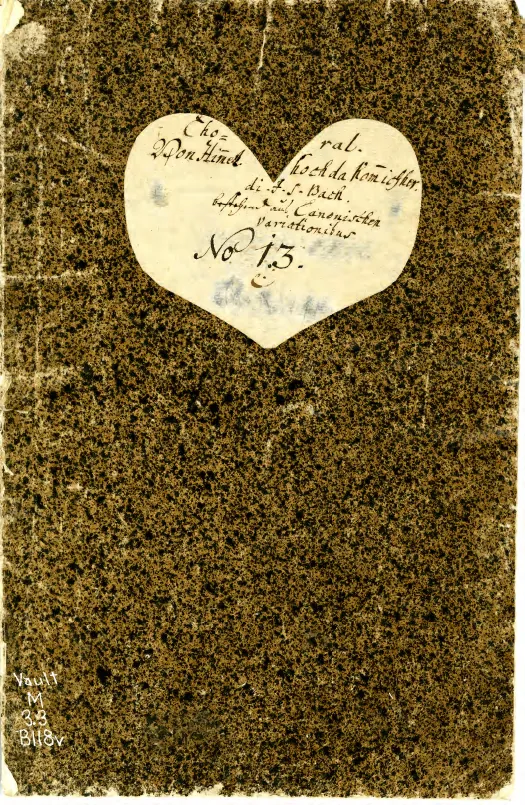 Cho= ral.
Von Him̅el hoch da kom̅ ich her.
di J. S. Bach.
bestehend aus Canonischen
Variationibus
No 13.
Vault
M
3.3
B118v